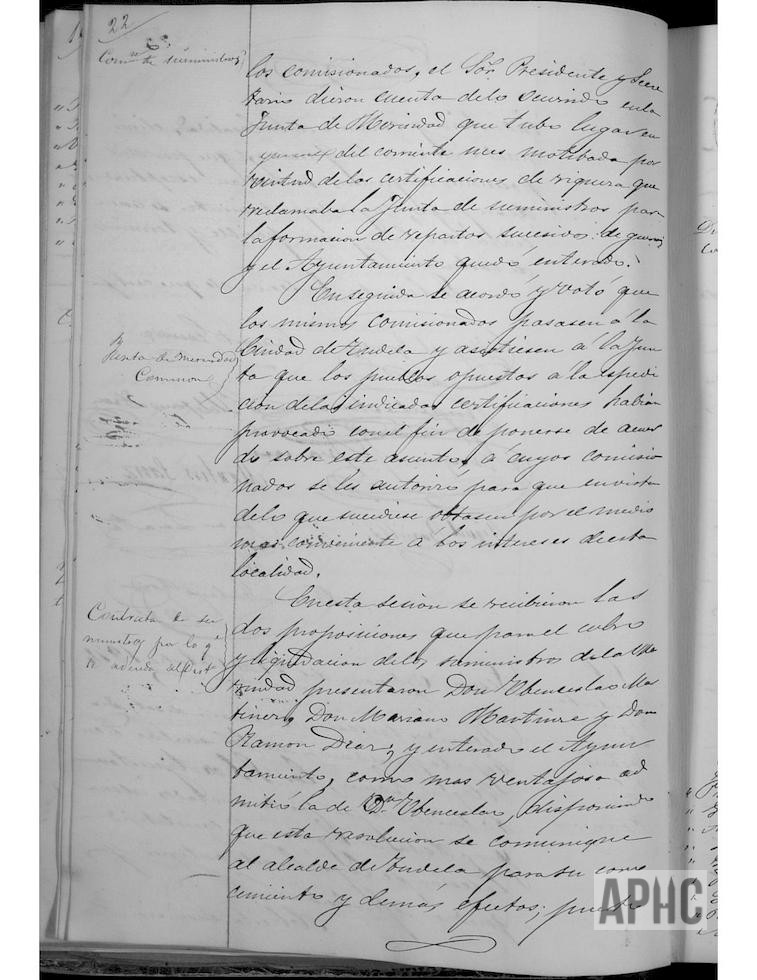 22
Comon. de suministros
los comisionados, el Sor. Presidente y Secre
tario dieron cuenta delo ocurrido enla
Junta de Merindad que tubo lugar en
del corriente mes motibada por
virtud delas certificaciones de riquera que
reclamaba la Junta de suministros para
la formacion de repartos sucesivos de guerra
y el Ayuntamiento quedó enterado.
Junta de Merindad
Comision
Enseguida se acordó y votó que
los mismos comisionados pasasen á la
Ciudad de Tudela y asistiesen á la Jun
ta que los pueblos opuestos á la espedi
cion delas indicadas certificaciones habian
provocado conel fin de ponerse de acuer
do sobre este asunto, á cuyos comisio
nados se les autorizo para que en vista
delo que sucediese obtasen por el medio
mas combeniente á los intereses de esta
localidad.
Contrata de su
ministros por lo qe
se adeuda al Dist
En esta sesion se recibieron las
dos proposiciones que para el cobro
y liquidacion delos suministros dela Me
rindad presentaron Don Wenceslao Ma
tinero, Don Mariano Martinez y Don
Ramon Diaz, y enterado el Ayun
tamiento, como mas ventajosa ad
mitió la de Dn. Wenceslao, disponiendo
que esta resolucion se comunique
al alcalde de Tudela para su cono
cimiento y demás efectos; puesto
APHC